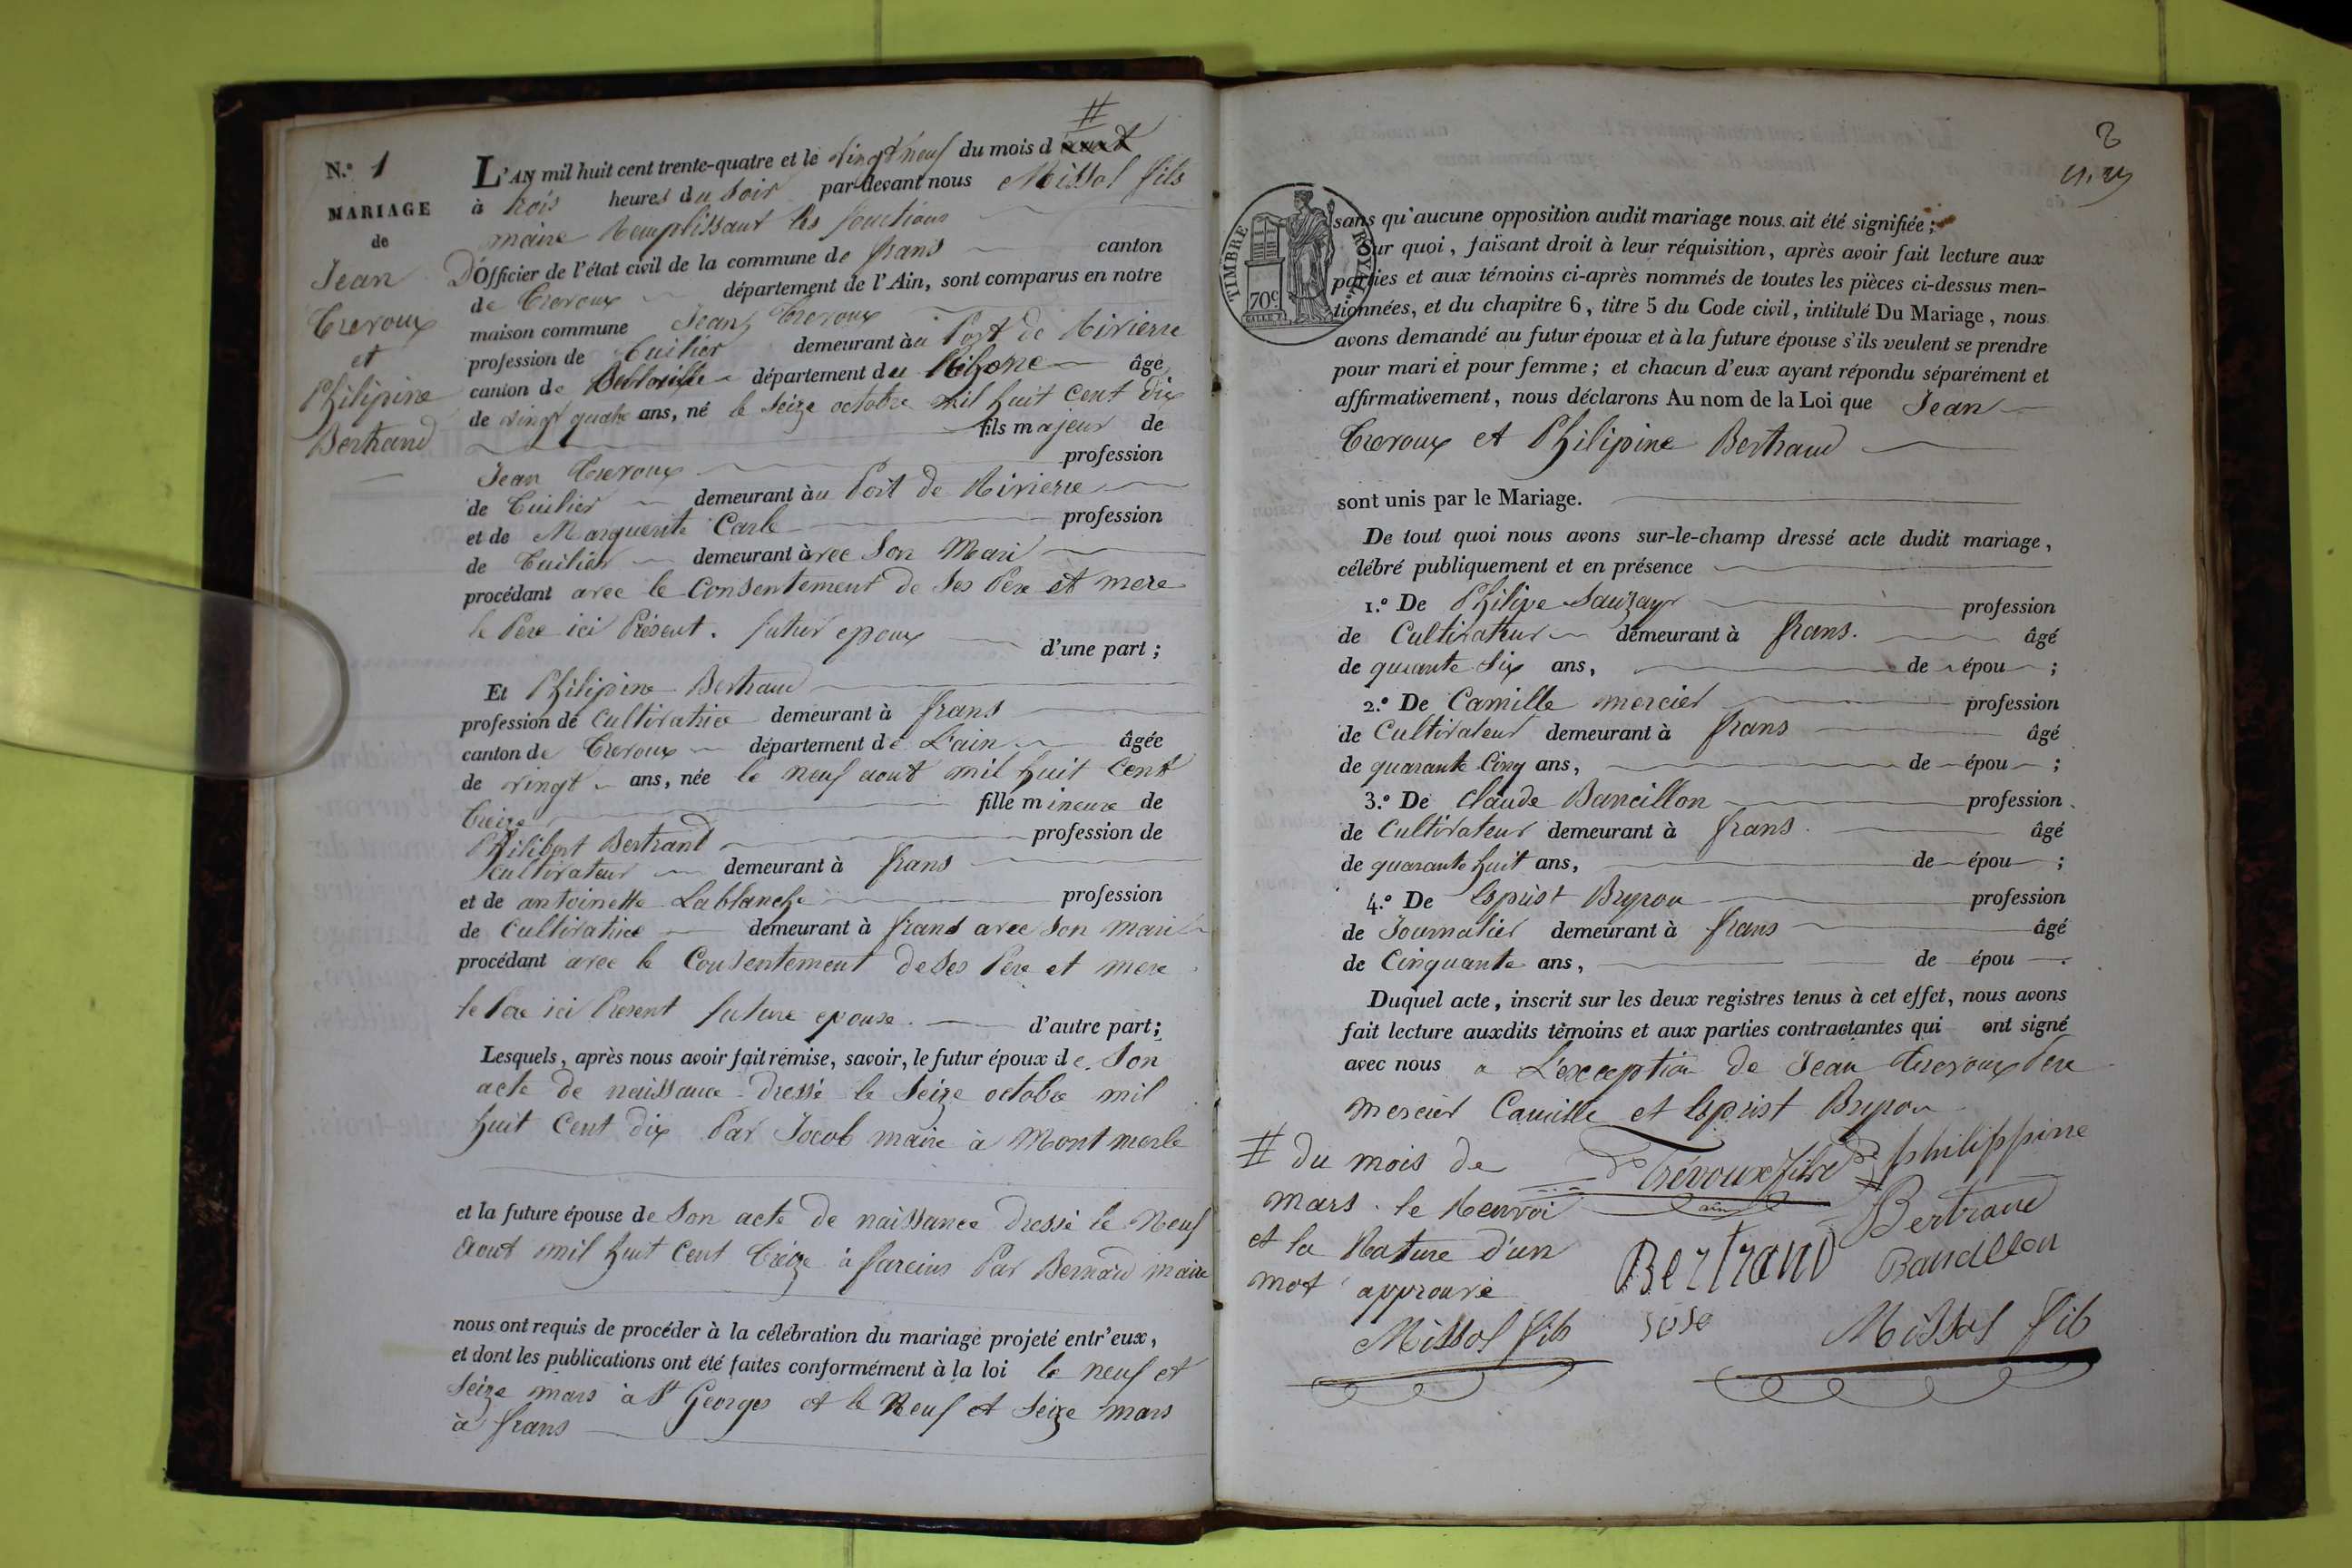 N.º 1
MARIAGE
de
Jean
Treroux
et
Philipine
Bertrand
#
L'AN mil huit cent trente-quatre et le vingt neuf du mois d
à trois heures du soir par devant nous Missol fils
maire Remplissant les fonctions
D'Officier de l'état civil de la commune de frans canton
de Treroux département de l'Ain, sont comparus en notre
maison commune Jean Treroux
profession de Tuilier demeurant àu Port de Rivierre
canton de département du Rhone âgé
de vingt quatre ans, né le seize octobre mil huit cent dix
fils majeur de
Jean Treroux profession
de Tuilier demeurant àu Port de Rivierre
et de Marguerite Carle profession
de Tuilier demeurant àvec son Mari
procédant avec le consentement de ses Père et mere
le Pere ici Présent. futur epoux d'une part ;
Et Philipine Bertrand
profession de cultivatrice demeurant à frans
canton de Treroux département de L'ain âgée
de vingt ans, née le neuf aout mil huit cent
treize fille mineure de
Philibert Bertrand profession de
cultivateur demeurant à frans
et de antoinette Lablanche profession
de Cultivatrice demeurant à frans avec son mari
procédant avec le Consentement de ses Pere et mere
le Pere ici Present future epouse. d'autre part ;
Lesquels, après nous avoir fait remise, savoir, le futur époux de son
acte de naissance dressé le seize octobre mil
huit cent dix Par Jocob maire à Montmerle
et la future épouse de son acte de naissance dressé le neuf
aout mil huit cent treize à fareins Par Bernard maire
nous ont requis de procéder à la célébration du mariage projeté entr'eux,
et dont les publications ont été faites conformément à la loi le neuf et
seize mars à St Georges et le Neuf et seize mars
à frans
2
TIMBRE ROYAL
70c
sans qu'aucune opposition audit mariage nous ait été signifiée ;
ur quoi, faisant droit à leur réquisition, après avoir fait lecture aux
parties et aux témoins ci-après nommés de toutes les pièces ci-dessus men-
tionnées, et du chapitre 6, titre 5 du Code civil, intitulé Du Mariage, nous
avons demandé au futur époux et à la future épouse s'ils veulent se prendre
pour mari et pour femme ; et chacun d'eux ayant répondu séparément et
affirmativement, nous déclarons Au nom de la Loi que Jean
Treroux et Philipine Bertrand
sont unis par le Mariage.
De tout quoi nous avons sur-le-champ dressé acte dudit mariage,
célébré publiquement et en présence
1.º De Philipe Sauzay profession
de Cultivateur demeurant à frans. âgé
de quarante six ans, de épou ;
2.º De Camille mercier profession
de Cultivateur demeurant à frans âgé
de quarante Cinq ans, de épou ;
3.º De Claude Bancillon profession
de Cultivateur demeurant à frans. âgé
de quarante huit ans, de épou ;
4.º De Esprist profession
de Journalier demeurant à frans âgé
de Cinquante ans, de épou .
Duquel acte, inscrit sur les deux registres tenus à cet effet, nous avons
fait lecture auxdits témoins et aux parties contractantes qui ont signé
avec nous a L'exception de Jean Treroux Pere
mercier Camille et Esprist
# du mois de
mars. le Renvoi
et la Rature d'un
mot approuvé
Trévoux fils
philippine
Bertrand
Bertrand
Bancillon
Missol fils
Missol fils